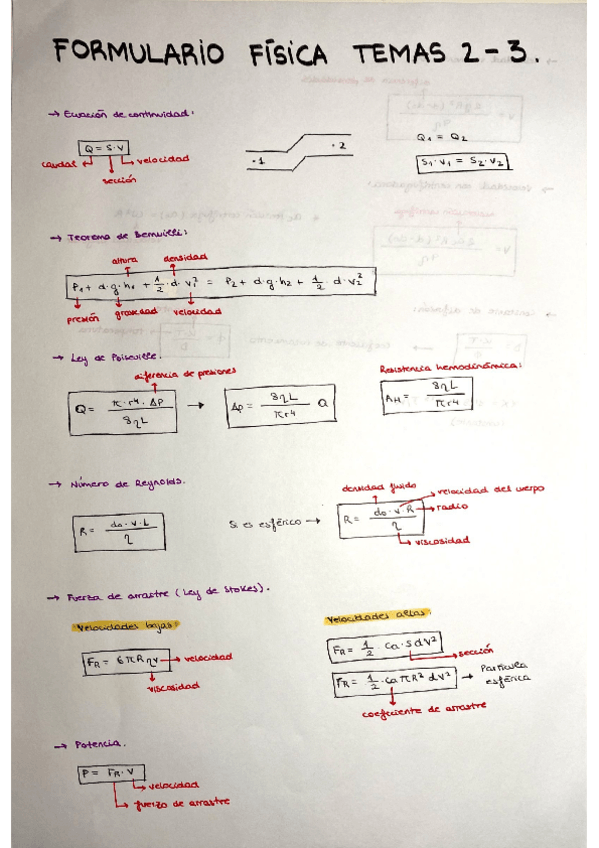 FORMULARIO FÍSICA TEMAS 2-3.
→ Ecuación de continuidad:
Q = S·V
caudal
velocidad
sección
·1
·2
Q1 = Q2
S1·V1 = S2·V2
→ Teorema de Bernuilli:
altura
densidad
P1 + d·g·h1 + 1/2·d·v1² = P2 + d·g·h2 + 1/2·d·v2²
presión
gravedad
velocidad
→ Ley de Poiseuille.
diferencia de presiones
Q = π·r4·ΔP / 8ηL → Δp = 8ηL / πr4 Q
Resistencia hemodinámica:
AH = 8ηL / πr4
→ Número de Reynolds.
R = do·v·L / η
Si es esférico →
densidad fluido
velocidad del cuerpo
R = do·v·R / η
radio
viscosidad
→ Fuerza de arrastre (Ley de Stokes).
Velocidades bajas:
FR = 6πRηv
velocidad
viscosidad
Velocidades altas:
FR = 1/2·Ca·Sdv²
sección
FR = 1/2·CaπR²dv² → Partícula esférica
coeficiente de arrastre
→ Potencia.
P = FR·V
velocidad
fuerza de arrastre